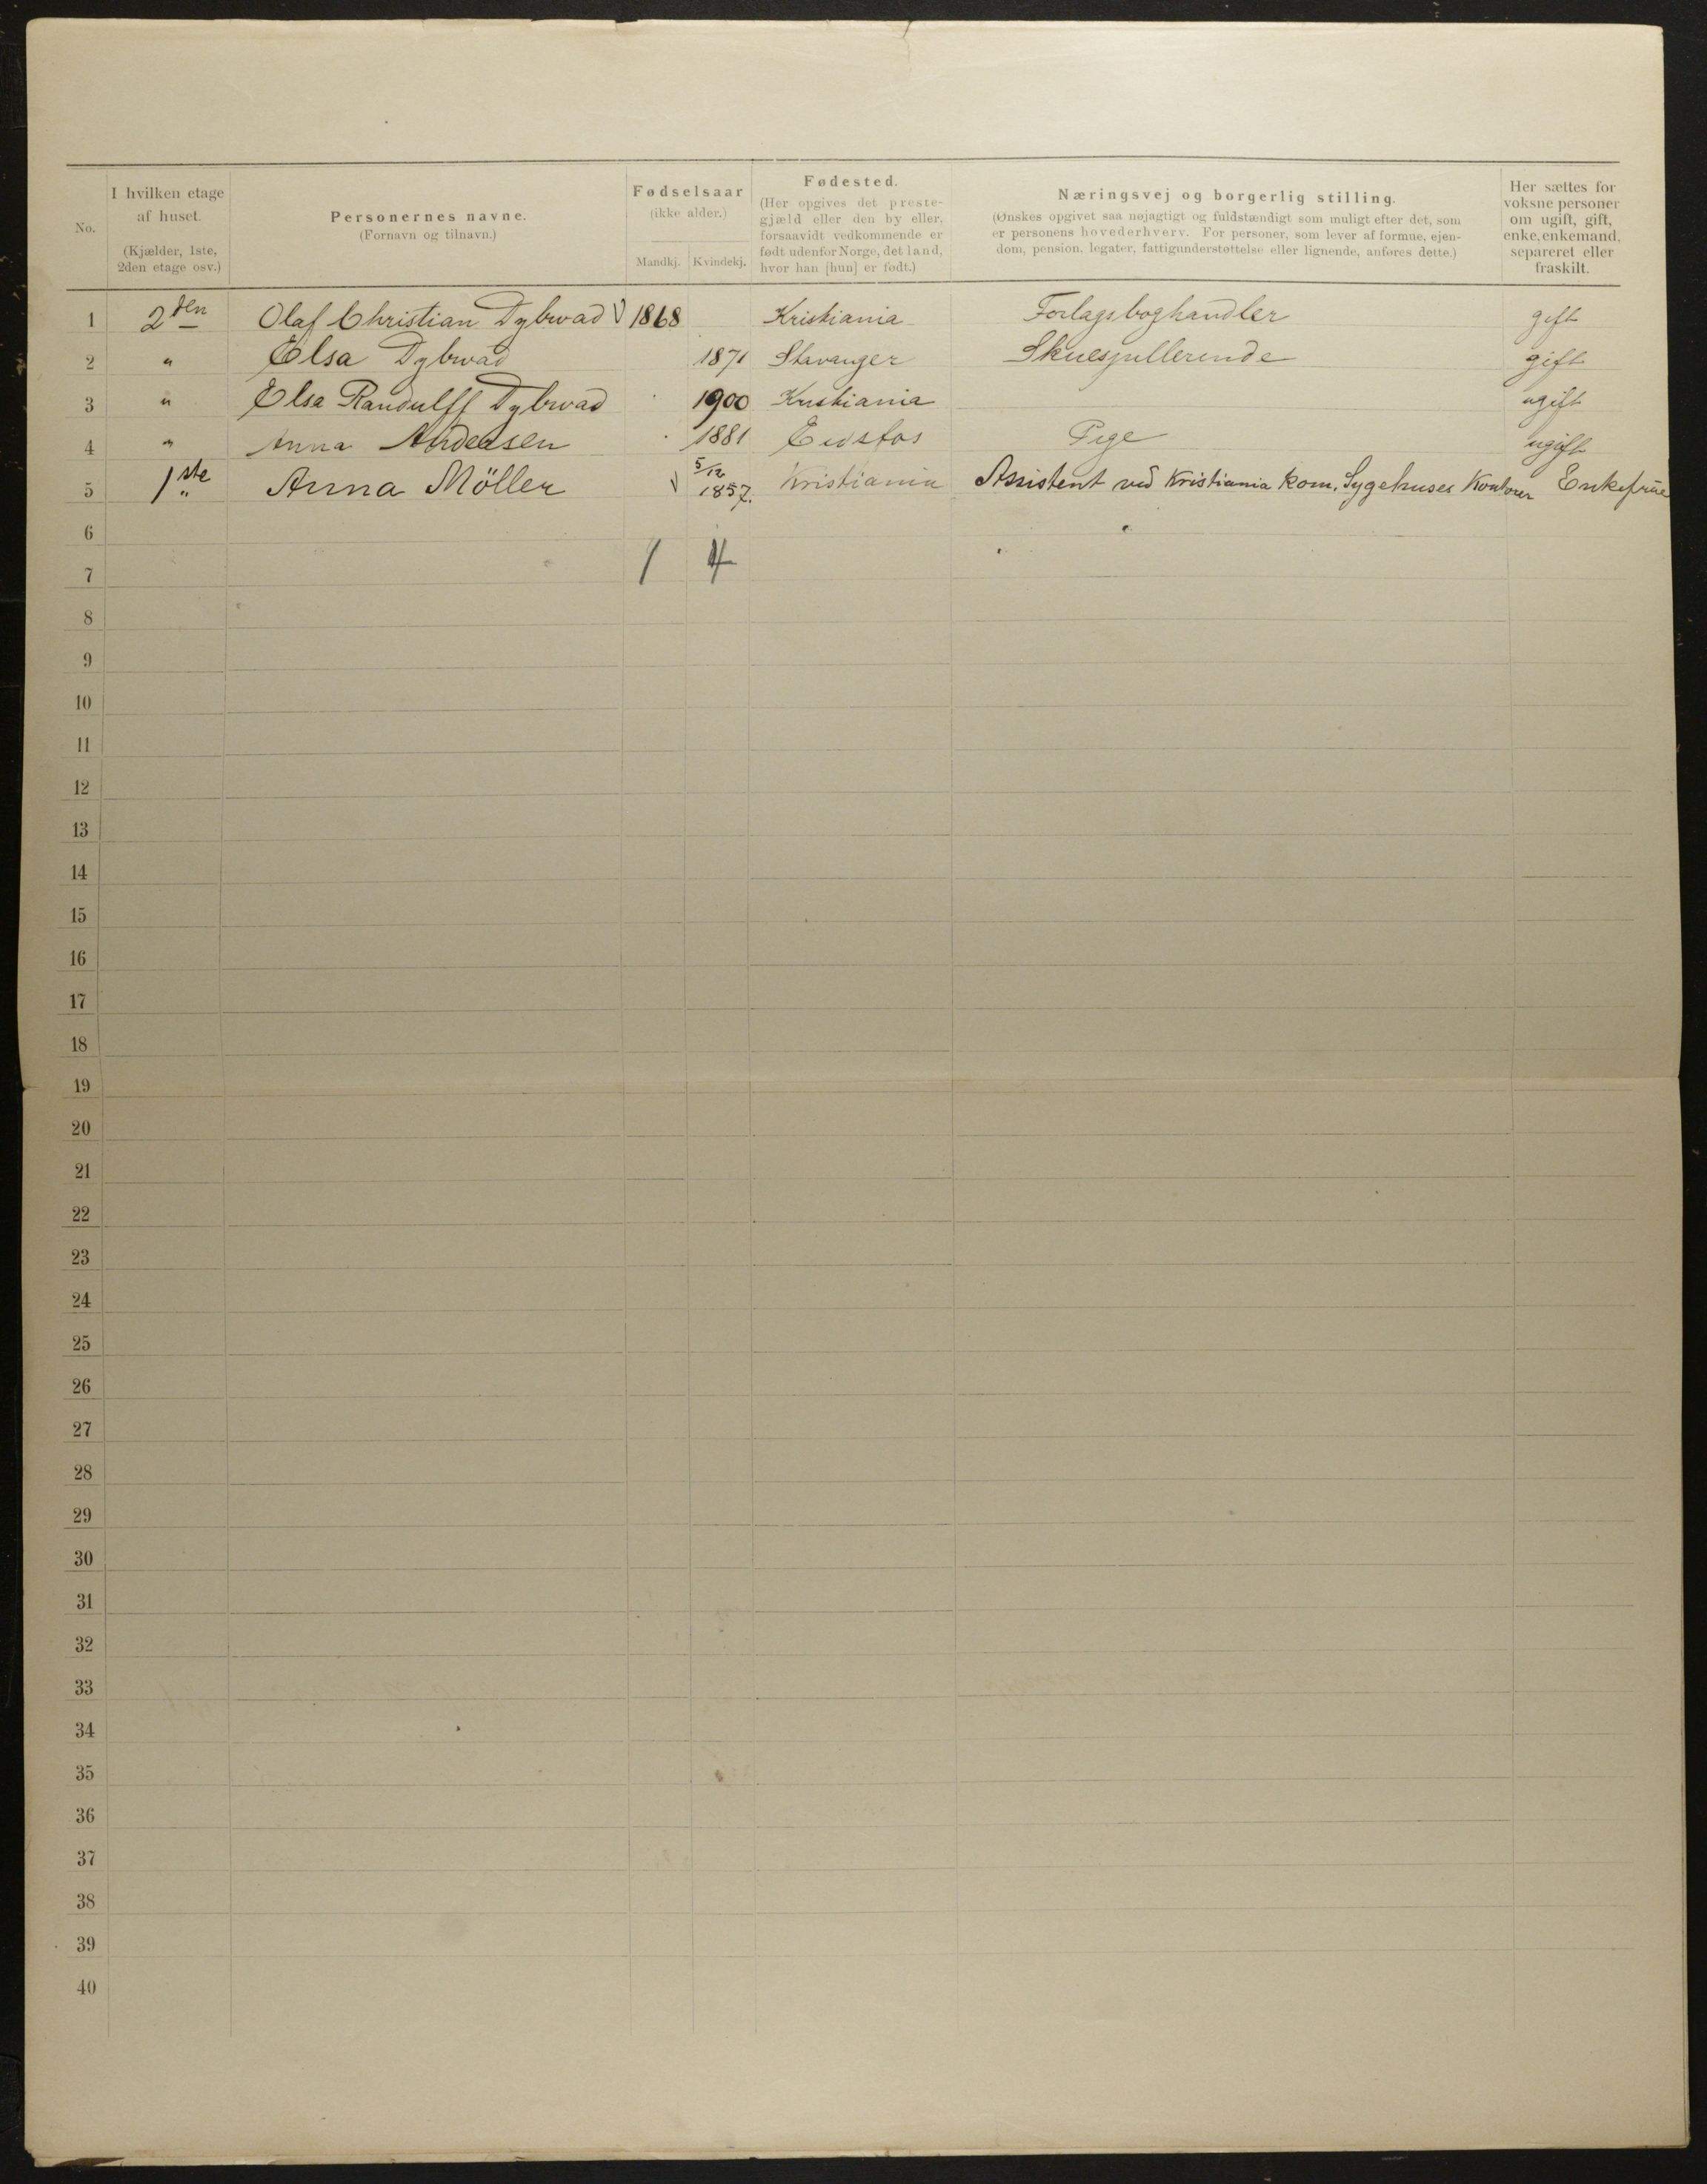 No.
I hvilken etage
af huset.
(Kjælder, 1ste,
2den etage osv.)
Personernes navne.
(Fornavn og tilnavn.)
Fødselsaar
(ikke alder.)
Mandkj. Kvindekj.
Fødested.
(Her opgives det preste-
gjæld eller den by eller,
forsaavidt vedkommende er
født udenfor Norge, det land,
hvor han [hun] er født.)
Næringsvej og borgerlig stilling.
(Ønskes opgivet saa nøjagtigt og fuldstændigt som muligt efter det, som
er personens hovederhverv. For personer, som lever af formue, ejen-
dom, pension, legater, fattigunderstøttelse eller lignende, anføres dette.)
Her sættes for
voksne personer
om ugift, gift,
enke, enkemand,
separeret eller
fraskilt.
1 2den Olaf Christian Dybwad 1868 Kristiania Forlagsboghandler gift
2 " Elsa Dybwad 1871 Stavanger Skuespillerinde gift
3 " Elsa Randulff Dybwad 1900 Kristiania ugift
4 " Anna Andersen 1881 Pige ugift
5 1ste " Anna Möller 5/12 1857. Kristiania Assistent ved Kristiania kom. Sygehuses Kontorer Enkefrue
6
7 1 4
8
9
10
11
12
13
14
15
16
17
18
19
20
21
22
23
24
25
26
27
28
29
30
31
32
33
34
35
36
37
38
39
40